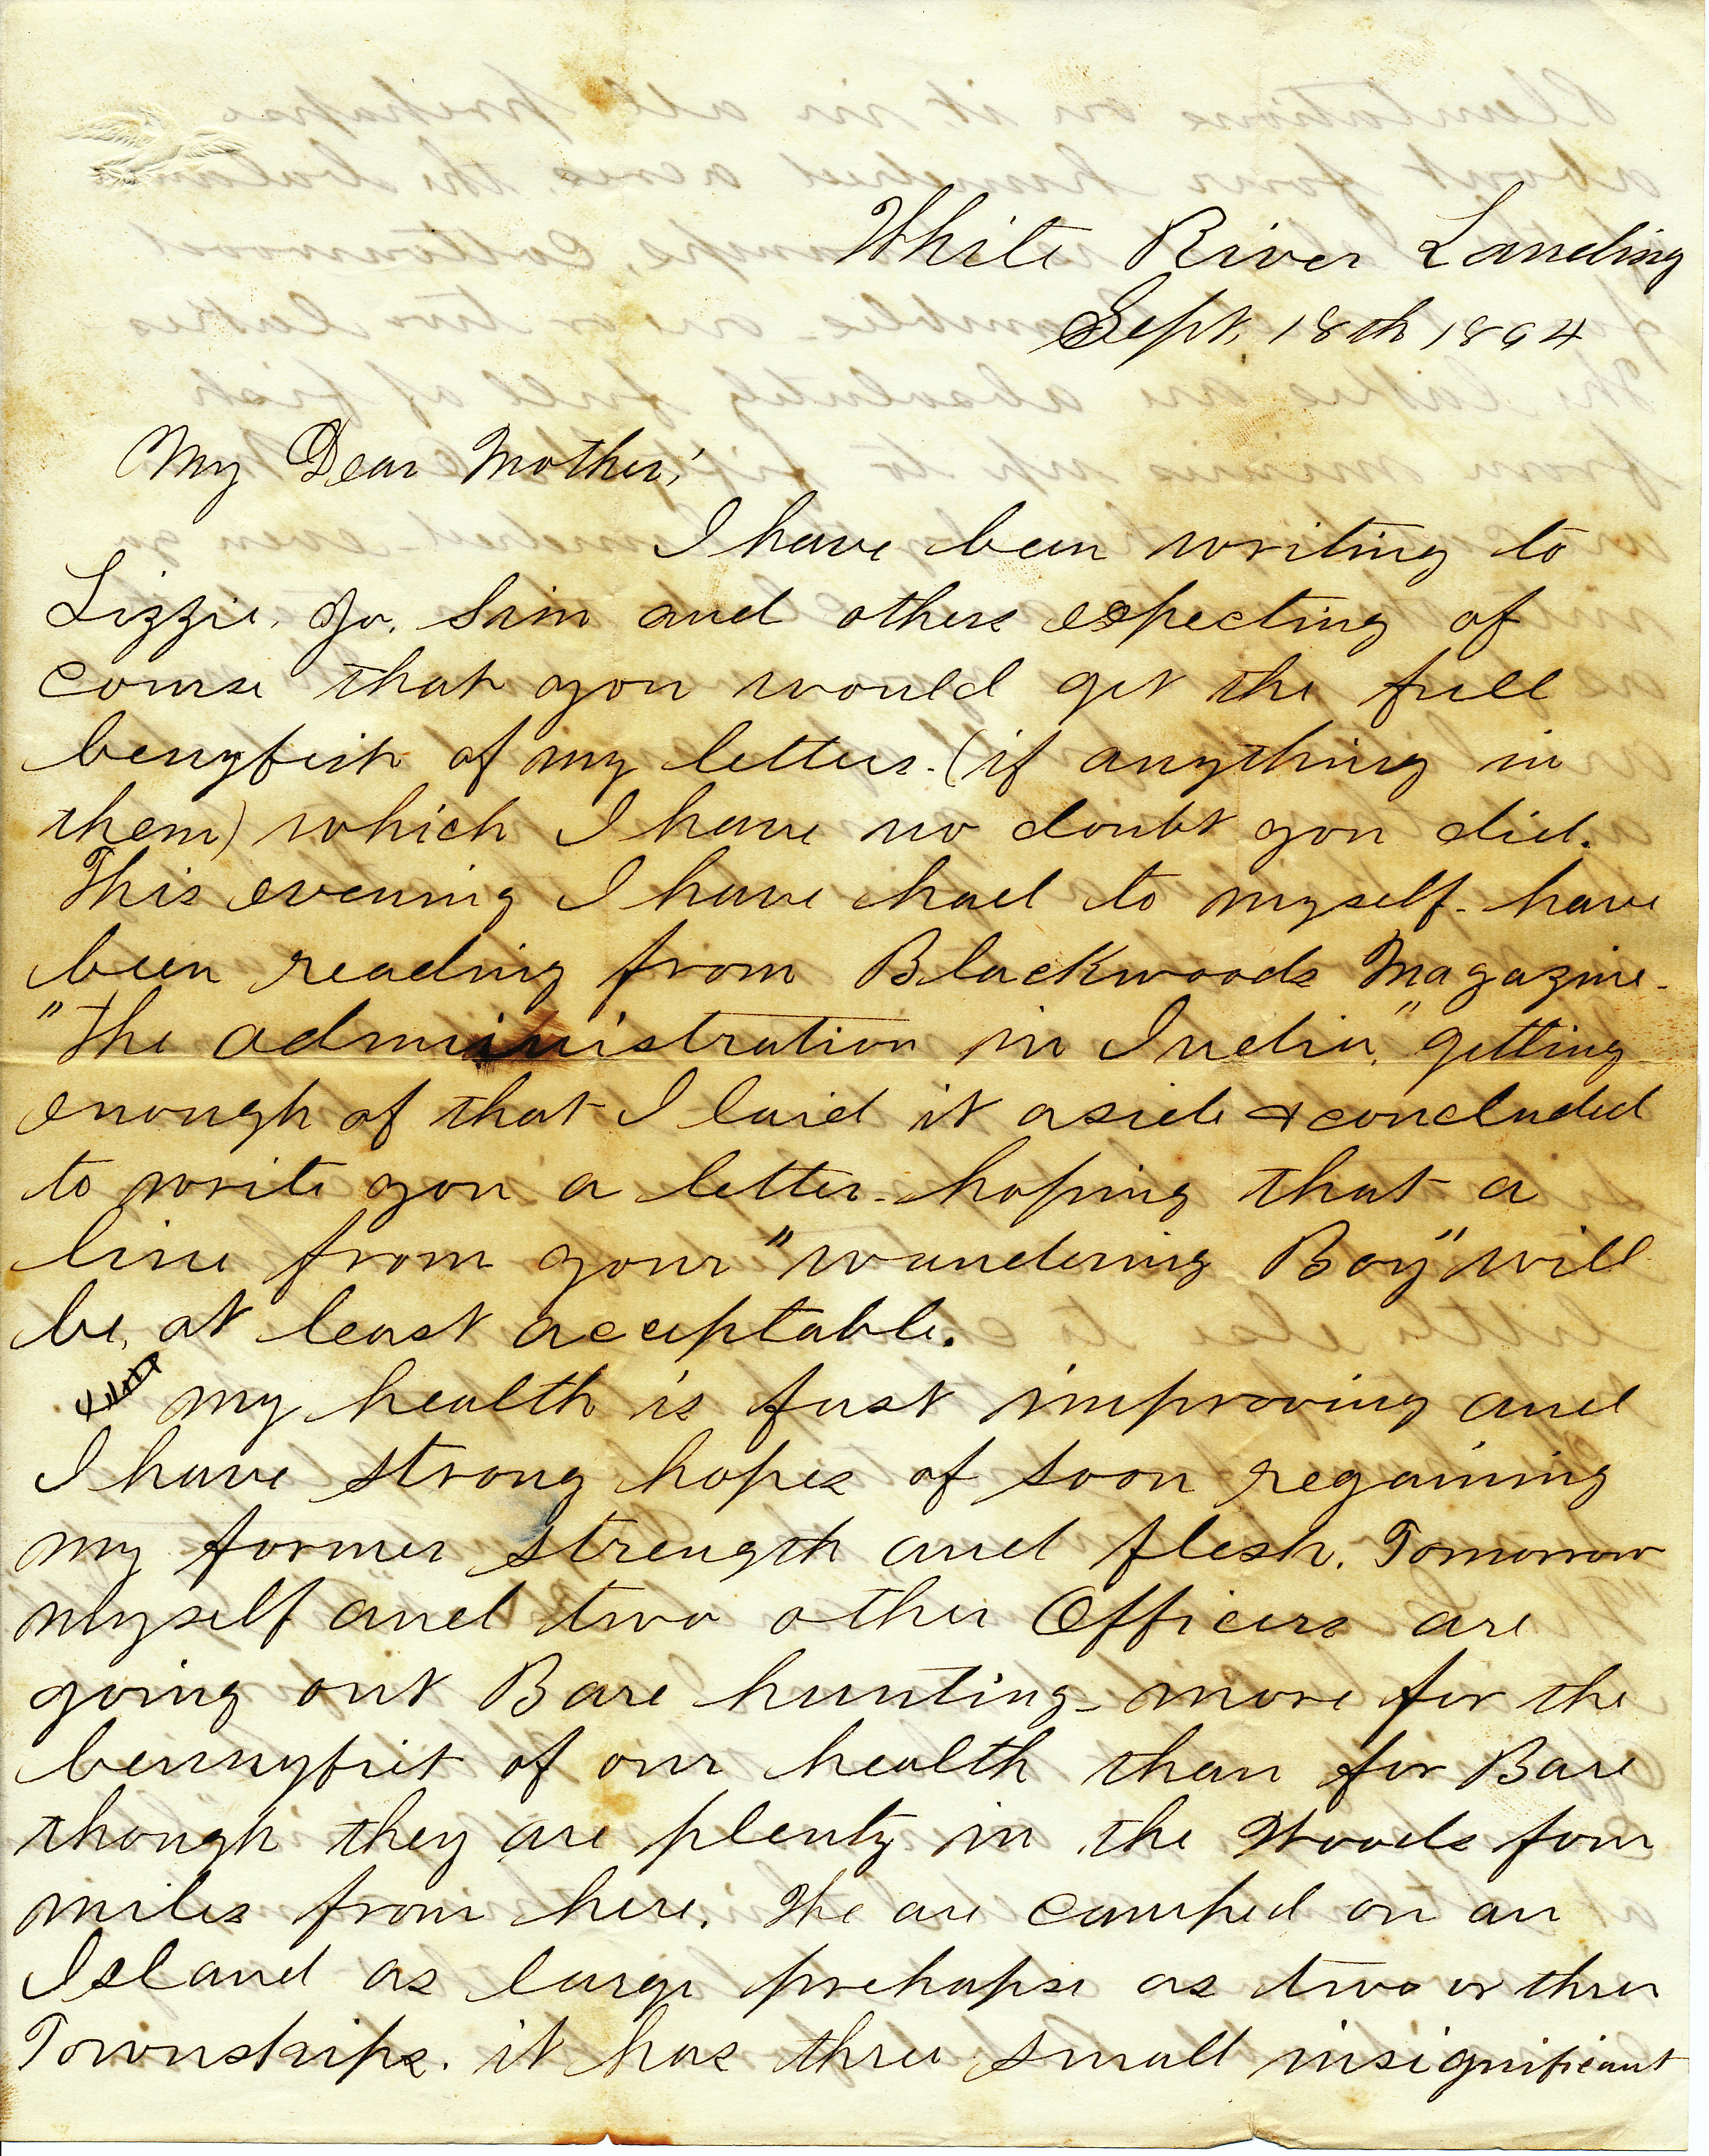 White River Landing
Sept. 18th 1864
My Dear Mother;
I have been writing to
Lizzie, Jo. Sim and others expecting of
course that you would get the full
benyfit of my letters. (if anything in
them) which I have no doubt you did.
This evening I have had to myself - have
been reading from Blackwoods Magazine -
"The administration in India," getting
enough of that I laid it aside & concluded
to write you a letter - hoping that a
line from your "wandering Boy" will
be, at least acceptable.
My health is fast improving and
I have strong hopes of soon regaining
my former strength and flesh. Tomorrow
myself and two other Officers are
going out Bare hunting - more for the
bennyfit of our health than for Bare
though they are plenty in the Woods four
miles from here. We are camped on an
Island as large prehapse as two or three
Townships. it has three small insignificant